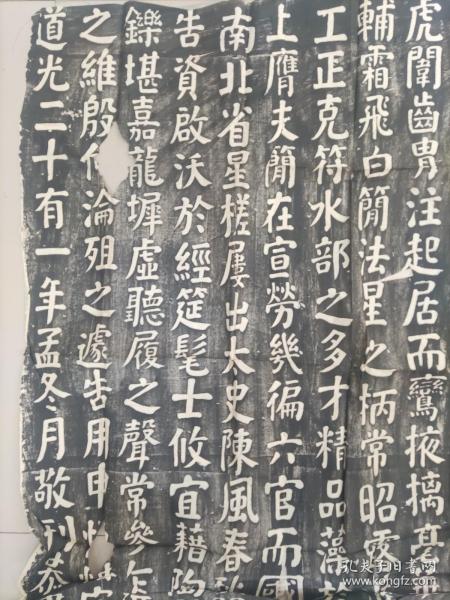 虎闈齒胄注起居而鸞掖摛毫
輔霜飛白簡法星之柄常昭霞
工正克符水部之多才精品藻於
上膺夫簡在宣勞幾徧六官而國
南北省星槎屢出太史陳風春
告資啟沃於經筵髦士攸宜藉陶
鑠堪嘉龍墀虛聽履之聲常參
之維殷何淪殂之遽告用申
道光二十有一年孟冬月敬刊
孔夫子旧书网